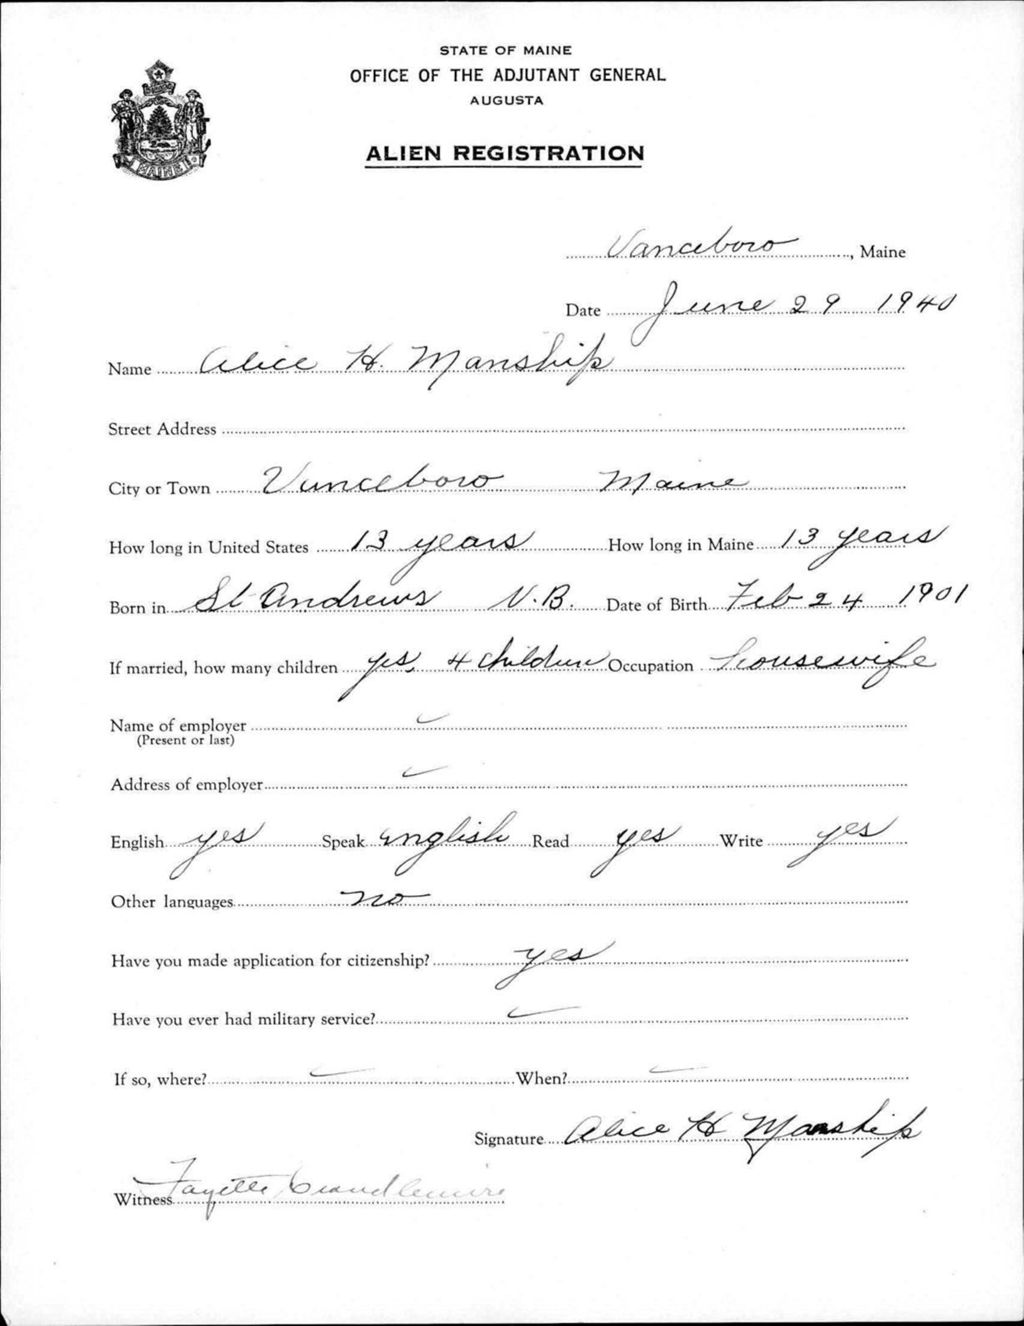 STATE OF MAINE
OFFICE OF THE ADJUTANT GENERAL
AUGUSTA
ALIEN REGISTRATION
MAINE
Vanceboro, Maine
Date June 29 1940
Name Alice H. Manship
Street Address
City or Town Vanceboro Maine
How long in United States 13 years How long in Maine 13 years
Born in St Andrews N.B. Date of Birth Feb 24 1901
If married, how many children yes, 4 children Occupation Housewife
Name of employer
(Present or last)
Address of employer
English yes Speak English Read yes Write yes
Other languages no
Have you made application for citizenship? yes
Have you ever had military service?
If so, where? When?
Signature Alice H Manship
Witness Fayette